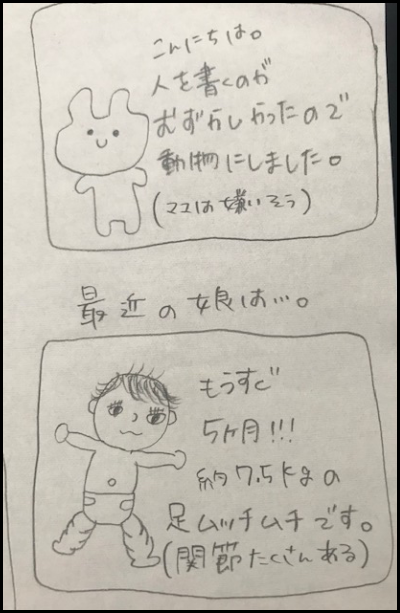 こんにちは。
人を書くのが
むずかしかったので
動物にしました。
(ママは嫌いそう)
最近の娘は…。
もうすぐ
5ヶ月!!!
約7.5kgの
足ムッチムチです。
(関節たくさんある)